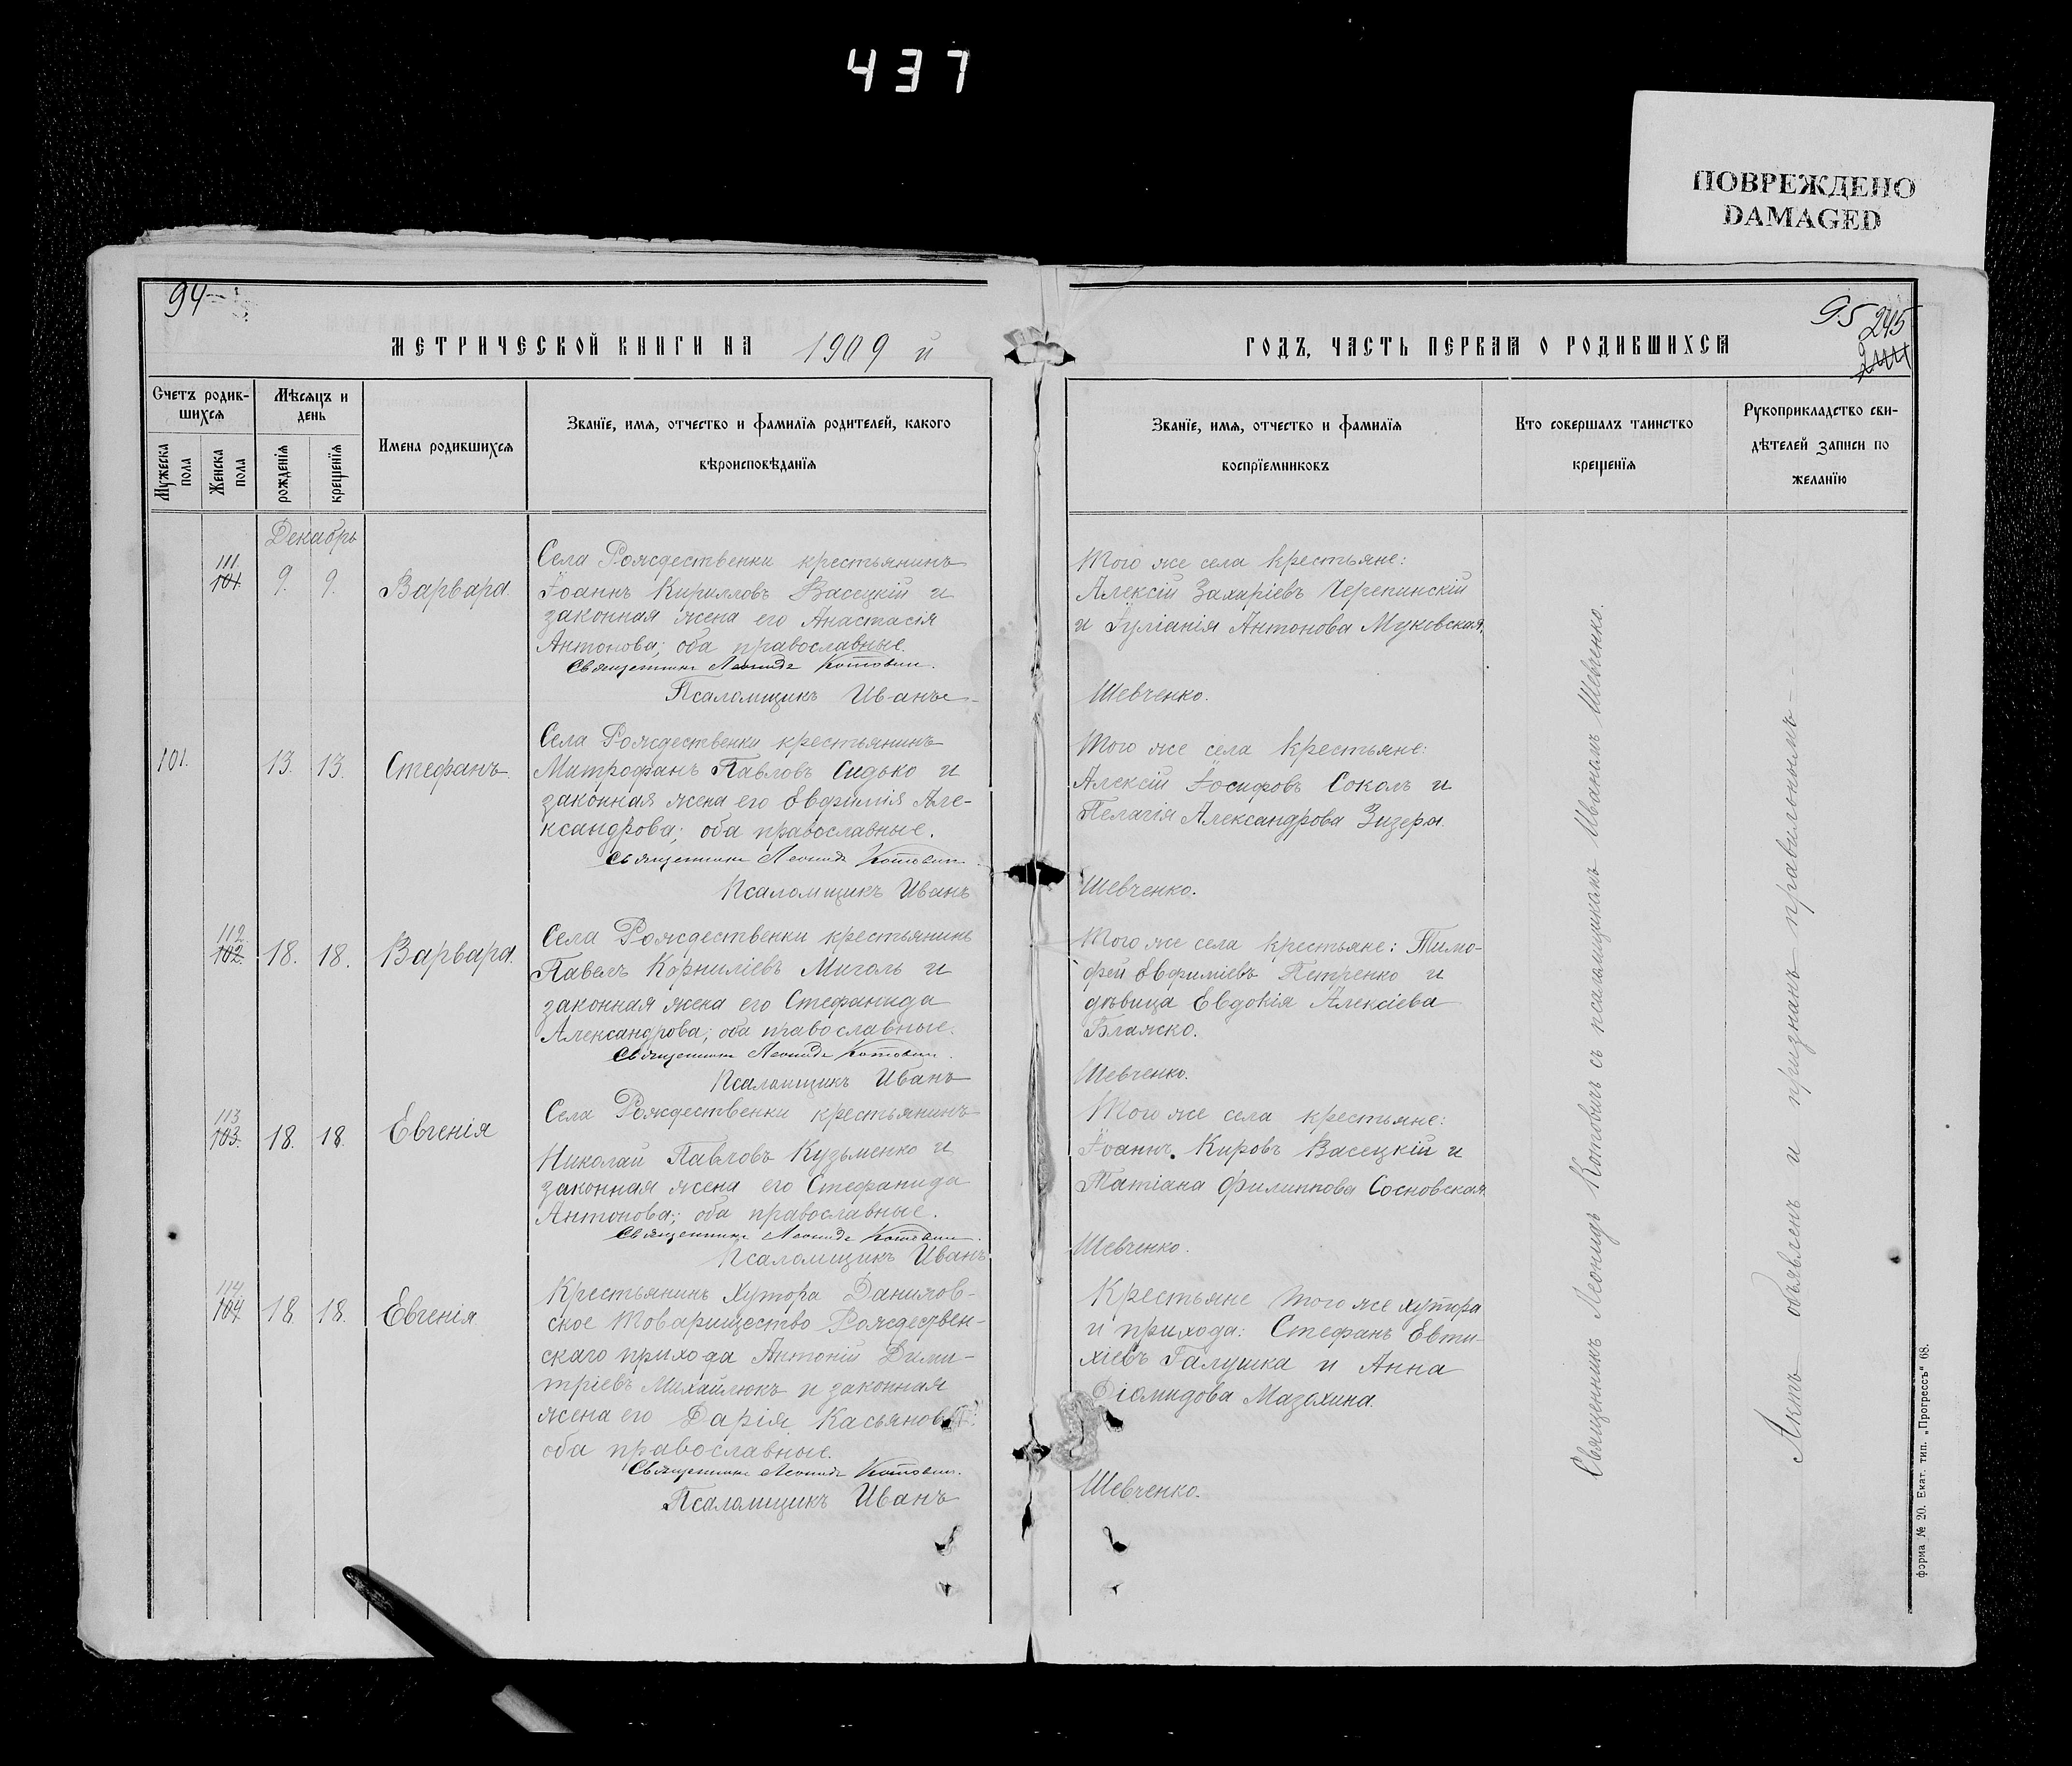 437
ПОВРЕЖДЕНО
DAMAGED
94
95
245
МЕТРИЧЕСКОЙ КНИГИ НА 1909 й
ГОДЪ, ЧАСТЬ ПЕРВАЯ О РОДИВШИХСЯ
Счетъ родив-
шихся
Мужеска
пола
Женска
пола
Мѣсяцъ и
день
рожденїя
крещенїя
Имена родившихся
Званїе, имя, отчество и фамилїя родителей, какого
вѣроисповѣданїя
Званїе, имя, отчество и фамилїя
воспрїемниковъ
Кто совершалъ таинство
крещенїя
Рукоприкладство сви-
дѣтелей записи по
желанїю
Декабрь
111.
101.
9.
9.
Варвара.
Села Рождественки крестьянинъ
Іоаннъ Кирилловъ Васецкій и
законная жена его Анастасія
Антонова; оба православные.
Священникъ Леонидъ Котовичъ.
Псаломщикъ Иванъ
Того же села крестьяне:
Алексій Захаріевъ Черепинскій
и Іуліанія Антонова Муковская.
Шевченко.
101.
13.
13.
Стефанъ.
Села Рождественки крестьянинъ
Митрофанъ Павловъ Сидько и
законная жена его Евфимія Але-
ксандрова; оба православные.
Священникъ Леонидъ Котовичъ.
Псаломщикъ Иванъ
Того же села крестьяне:
Алексій Іосифовъ Соколъ и
Пелагія Александрова Зизеря.
Шевченко.
112.
102.
18.
18.
Варвара.
Села Рождественки крестьянинъ
Павелъ Корниліевъ Миголь и
законная жена его Стефанида
Александрова; оба православные.
Священникъ Леонидъ Котовичъ.
Псаломщикъ Иванъ
Того же села крестьяне: Тимо-
фей Евфиміевъ Петренко и
дѣвица Евдокія Алексіева
Блажко.
Шевченко.
113
103.
18.
18.
Евгенія
Села Рождественки крестьянинъ
Николай Павловъ Кузьменко и
законная жена его Стефанида
Антонова; оба православные.
Священникъ Леонидъ Котовичъ.
Псаломщикъ Иванъ
Того же села крестьяне:
Іоаннъ Кировъ Васецкій и
Татіана Филиппова Сосновская.
Шевченко.
114.
104.
18.
18.
Евгенія
Крестьянинъ хутора Данилов-
ское Товарищество Рождествен-
скаго прихода Антоній Дими-
тріевъ Михайлюкъ и законная
жена его Дарія Касьянова;
оба православные.
Священникъ Леонидъ Котовичъ.
Псаломщикъ Иванъ
Крестьяне того же хутора
и прихода: Стефанъ Евти-
хіевъ Галушка и Анна
Діомидова Мазохина.
Шевченко.
Священникъ Леонидъ Котовичъ съ псаломщикомъ Иваномъ Шевченко.
Актъ объявленъ и признанъ правильнымъ
Форма № 20. Екат. тип. „Прогрессъ“ 68.